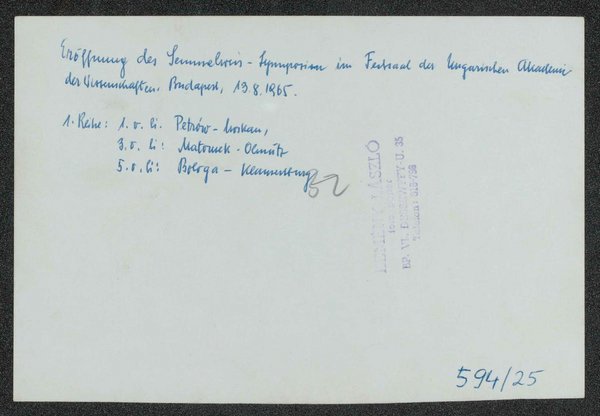 Eröffnung des Semmelweis-Symposium im Festsaal der Ungarischen Akademie
der Wissenschaften. Budapest, 13.8.1965.
1. Reihe: 1. v. li. Petrów - Moskau,
3. v. li: Matousek - Olmütz
5. v. li: Bologa - Klausenburg
52
LÁSZLÓ
BP. VI.
594/25